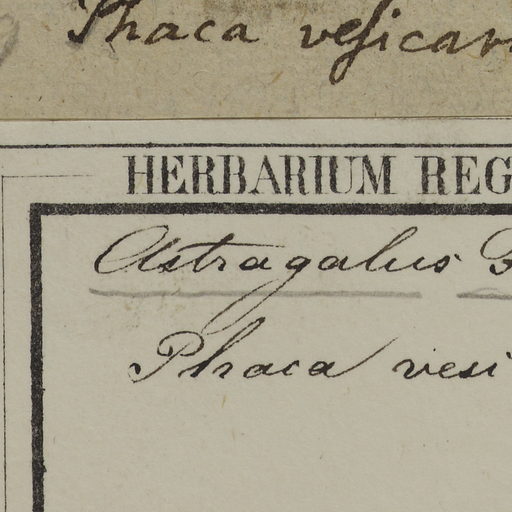 Phaca vesicar
HERBARIUM REG
Astragalus
Phaca vesi